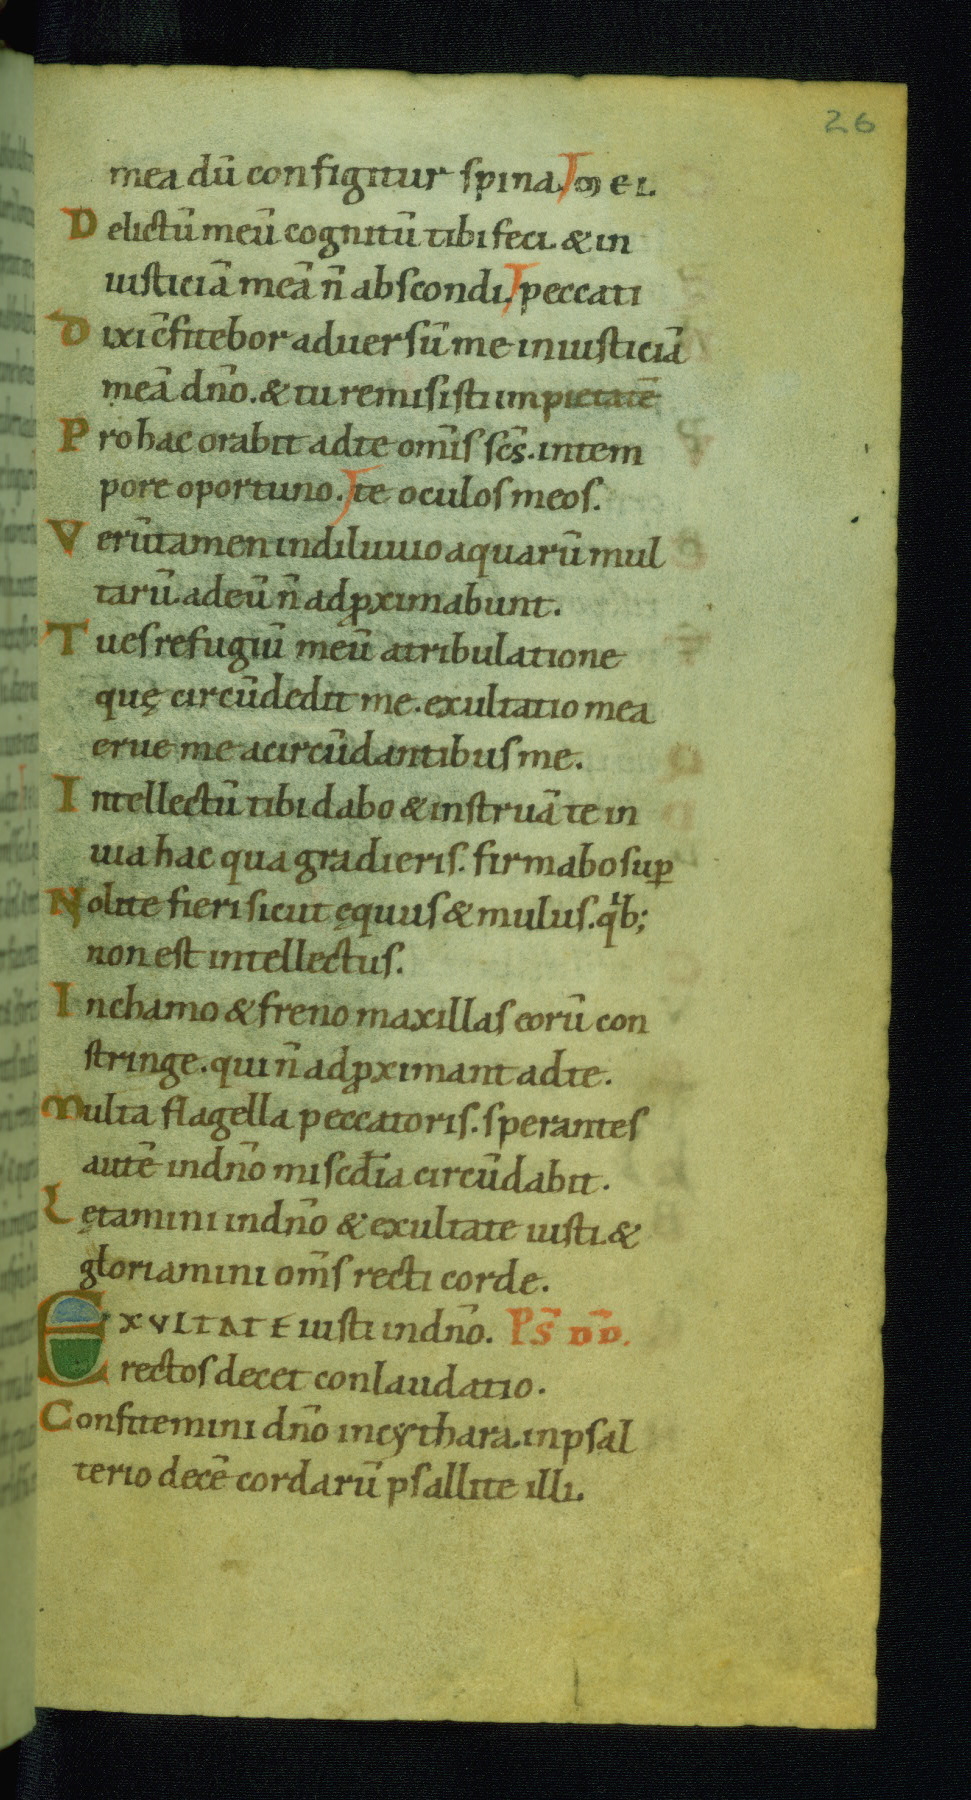 26
mea dū configitur spina. mei.
Delictū meū cognitū tibi feci. & in
iusticiā meā n̄ abscondi. peccati
Dixi c̄fitebor aduersū me iniusticiā
meā dn̄o. & tu remisisti impietatē
Pro hac orabit ad te om̄is sc̄s. in tem
pore oportuno. te oculos meos.
Verūtamen in diluuio aquarū mul
tarū. ad eū n̄ adꝓximabunt.
Tu es refugiū meū a tribulatione
quę circūdedit me. exultatio mea
erue me a circūdantibus me.
Intellectū tibi dabo & instruā te in
uia hac qua gradieris. firmabo suꝑ
Nolite fieri sicut ęquus & mulus. qͥb;
non est intellectus.
In chamo & freno maxillas eorū con
stringe. qui n̄ adꝓximant ad te.
Multa flagella peccatoris. sperantes
autē in dn̄o misc̄dia circūdabit.
Lętamini in dn̄o & exultate iusti. &
gloriamini om̄s recti corde.
EXVLTATE iusti in dn̄o. Ps̄ DD̄.
rectos decet conlaudatio.
Confitemini dn̄o in cythara. in psal
terio decē cordarū psallite illi.